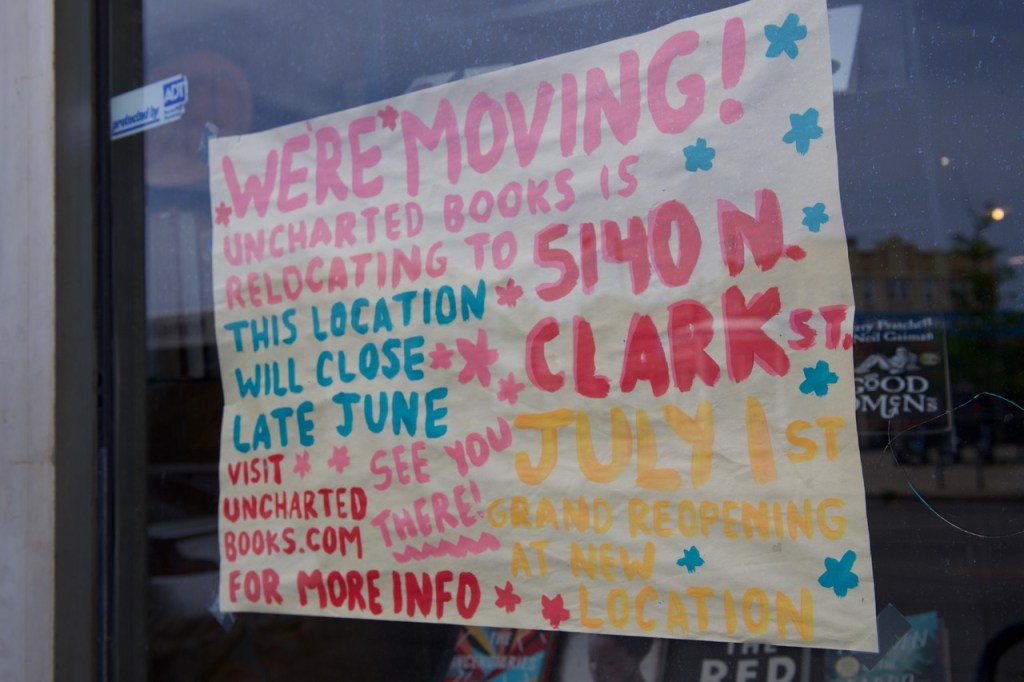 WE'RE MOVING!
UNCHARTED BOOKS IS
RELOCATING TO
5140 N.
CLARK ST.
THIS LOCATION
WILL CLOSE
LATE JUNE
JULY 1 ST
GRAND REOPENING
AT NEW
LOCATION
SEE YOU
THERE!
VISIT
UNCHARTED
BOOKS.COM
FOR MORE INFO
protected by ADT
Pratchett
Neil Gaiman
GOOD
OMENS
INCENDIARIES
THE
RED